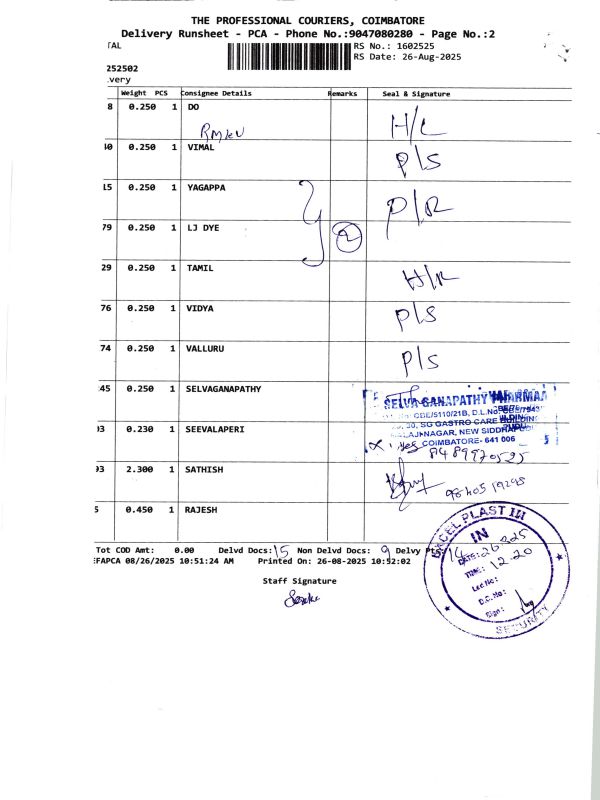 THE PROFESSIONAL COURIERS, COIMBATORE
Delivery Runsheet - PCA - Phone No.:9047080280 - Page No.:2
TAL
RS No.: 1602525
RS Date: 26-Aug-2025
252502
very
Weight PCS Consignee Details Remarks Seal & Signature
8 0.250 1 DO H/L
40 0.250 1 VIMAL P/S
15 0.250 1 YAGAPPA P/R
79 0.250 1 LJ DYE 2
29 0.250 1 TAMIL H/R
76 0.250 1 VIDYA P/S
74 0.250 1 VALLURU P/S
45 0.250 1 SELVAGANAPATHY
SELVA GANAPATHY PHARMAA
CBE/5110/21B, D.L.No.
30, SG GASTRO CARE BUILDING
NAGAR, NEW SIDDHAPUDUR
COIMBATORE- 641 006
93 0.230 1 SEEVALAPERI 8489970525
93 2.300 1 SATHISH
5 0.450 1 RAJESH
EXCEL PLAST IN
IN
DATE: 26
TIME: 12.20
Lee No:
D.C. No:
Sign:
SECURITY
Tot COD Amt: 0.00 Delvd Docs: 15 Non Delvd Docs: 9 Delvy
FAPCA 08/26/2025 10:51:24 AM Printed On: 26-08-2025 10:52:02
Staff Signature